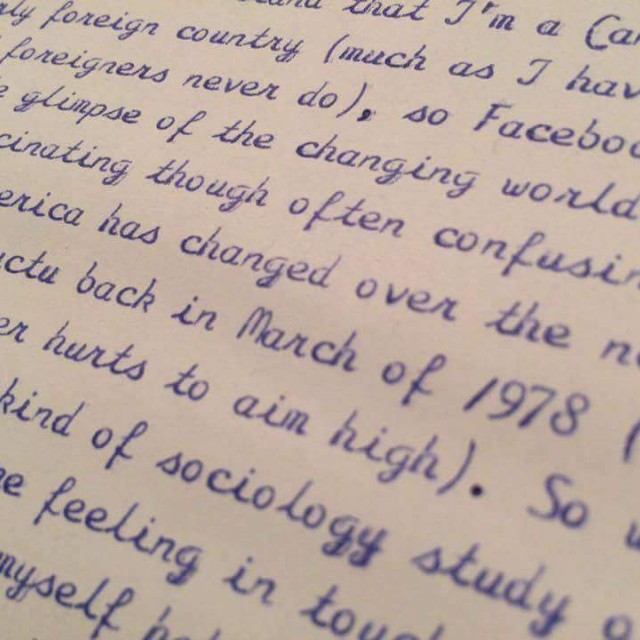 that I'm a Ca
foreign country (much as I hav
foreigners never do), so Faceboo
glimpse of the changing world
cinating though often confusin
erica has changed over the n
ctu back in March of 1978 (
er hurts to aim high). So w
kind of sociology study o
e feeling in touc
myself